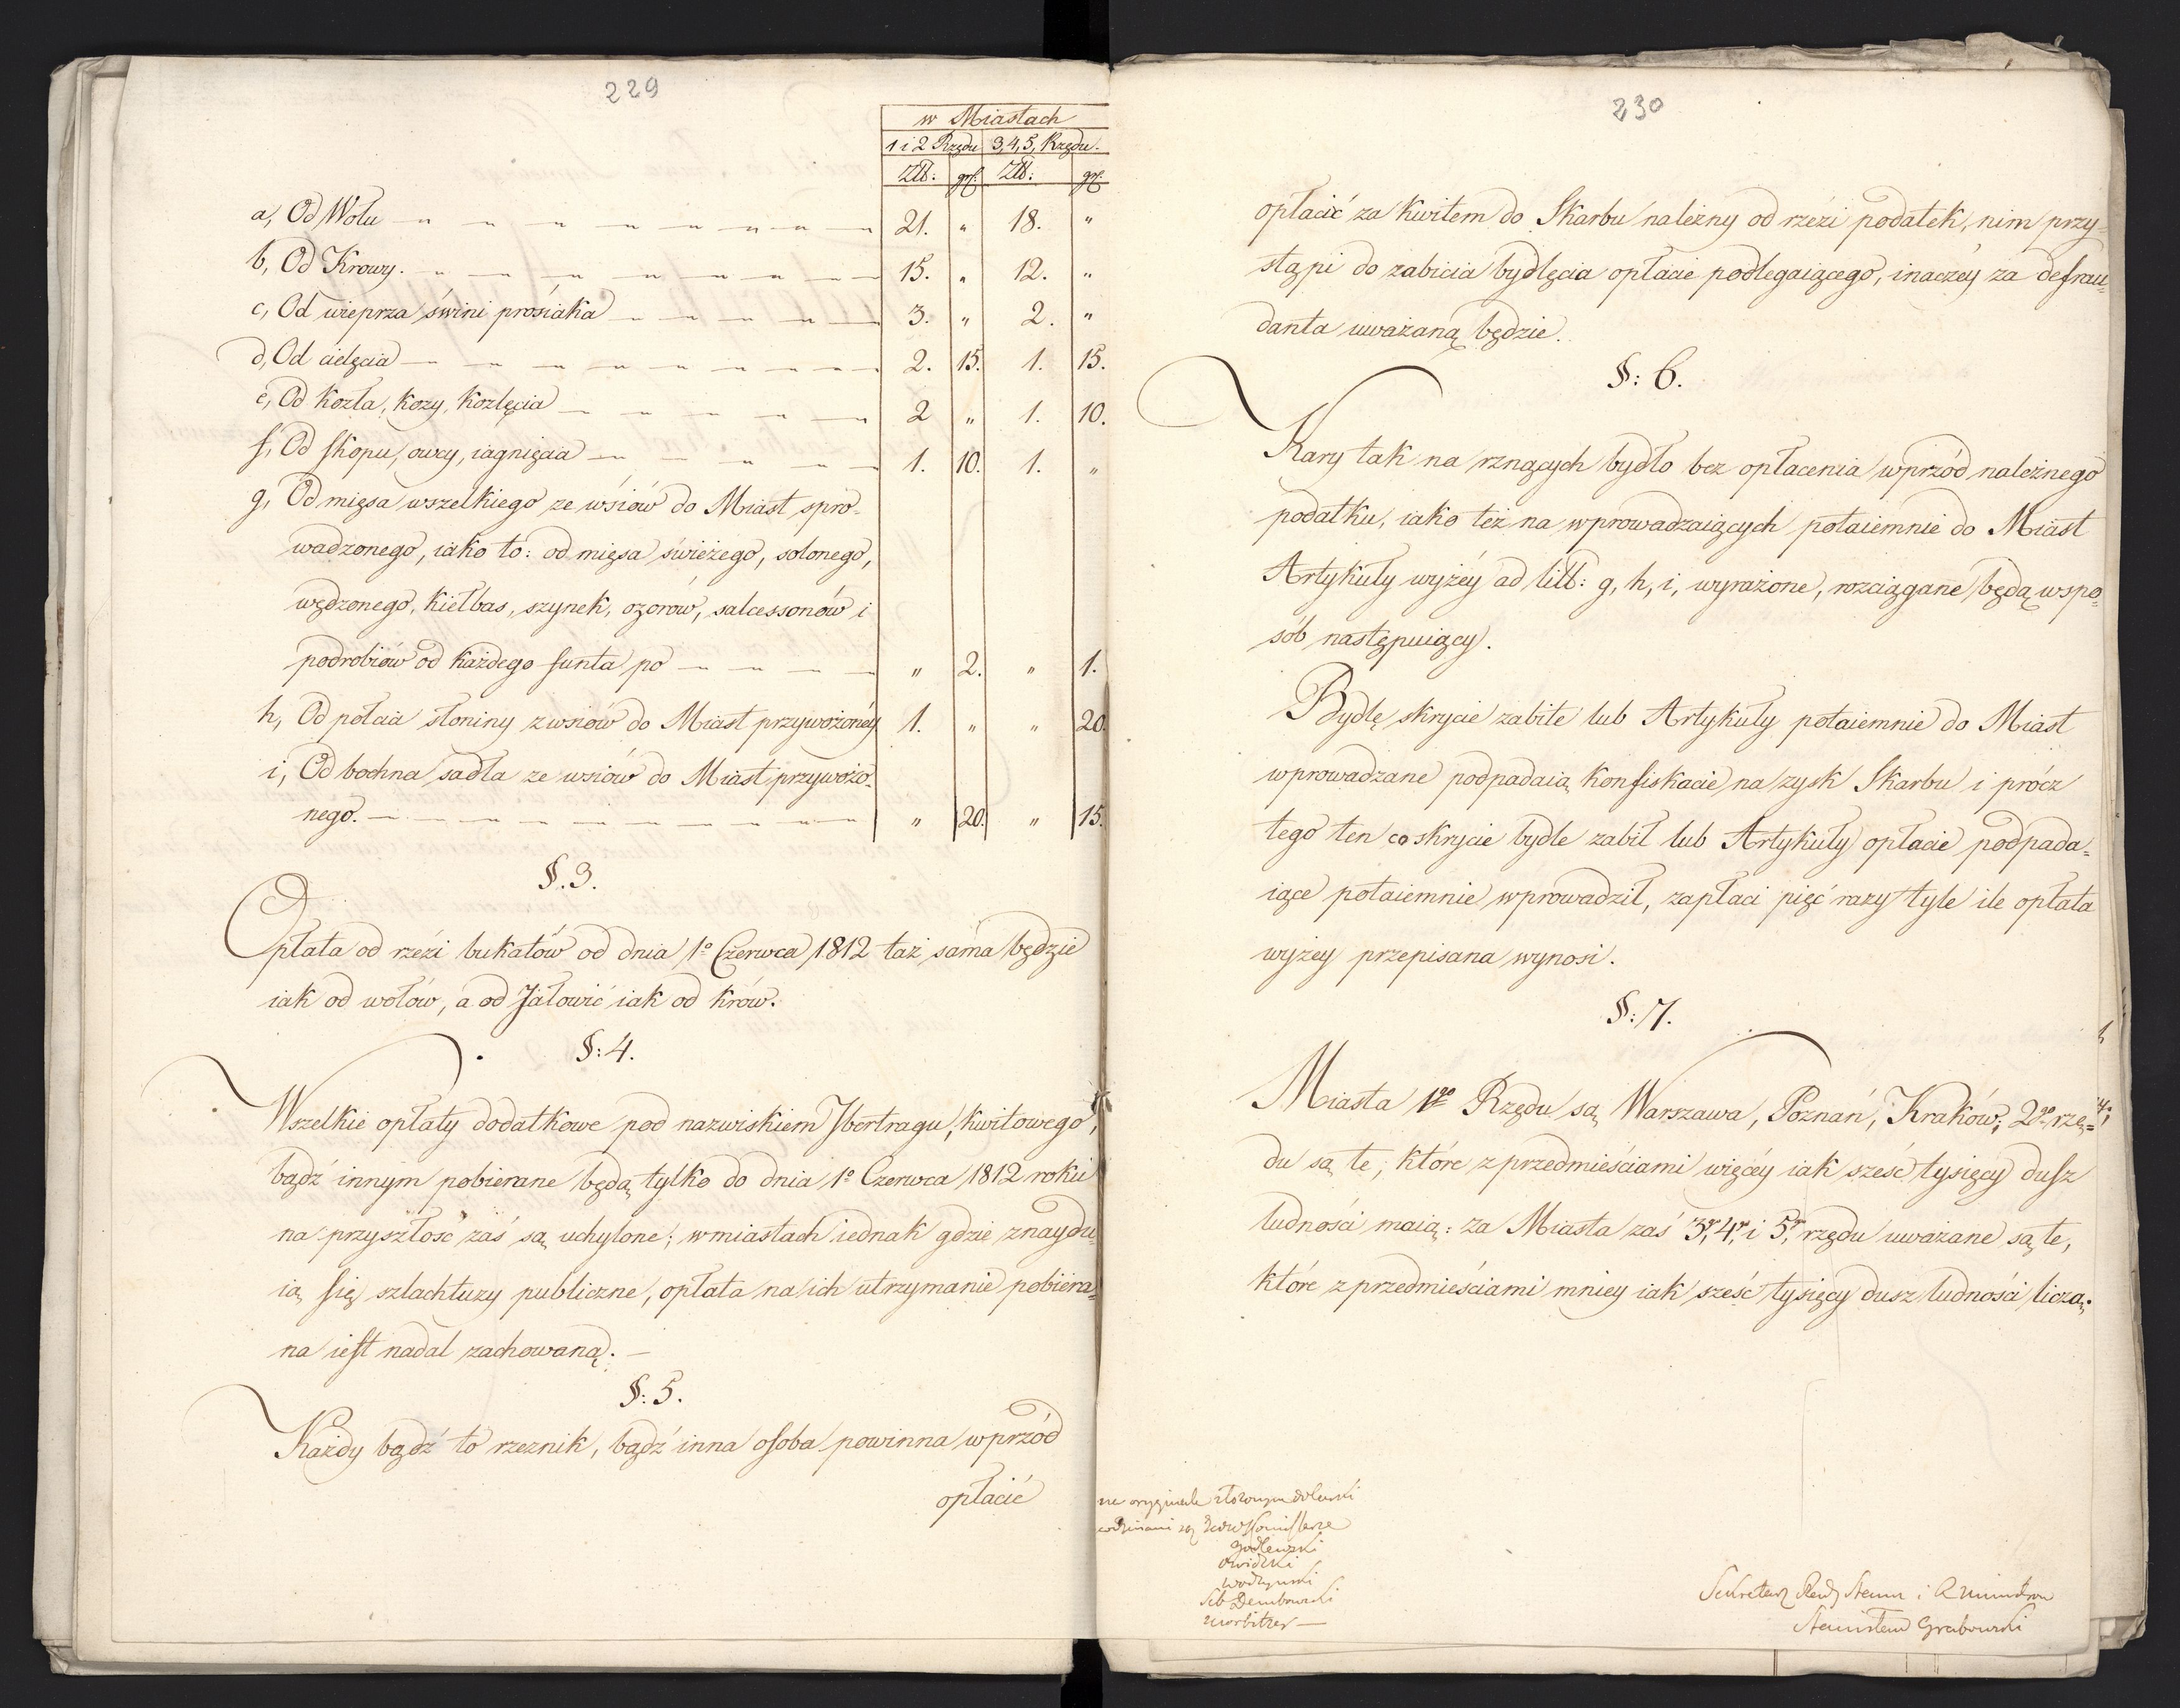 229
w Miastach
1 i 2 Rzędu 3, 4, 5, Rzędu.
Złł: gr: Złł: gr:
a, Od Wołu 21. " 18. "
b, Od Krowy. 15. " 12. "
c, Od wieprza świni prosiaka 3. " 2. "
d, Od cielęcia 2. 15. 1. 15.
e, Od kozła, kozy, koźlęcia 2 " 1. 10.
f, Od skopu, owcy, iagnięcia 1. 10. 1. "
g, Od mięsa wszelkiego ze wsiów do Miast spro-
wadzonego, iako to: od mięsa świeżego, solonego,
wędzonego, kiełbas, szynek, ozorow, salcessonów i
podrobiów od każdego funta po " 2. " 1.
h, Od połcia słoniny z wsiów do Miast przywożonéy 1. " " 20.
i, Od bochna sadła ze wsiów do Miast przywożo-
nego. " 20. " 15.
§. 3.
Opłata od rzezi bukatów od dnia 1º Czerwca 1812 taż sama będzie
iak od wołów, a od Jałowic iak od krów.
§: 4.
Wszelkie opłaty dodatkowe pod nazwiskiem Ibertragu, kwitowego,
bądź innym pobierane będą tylko do dnia 1º Czerwca 1812 roku
na przyszłość zaś są uchylone; w miastach iednak gdzie znaydu-
ią się szlachtuzy publiczne, opłata na ich utrzymanie pobiera-
na iest nadal zachowaną. —
§: 5.
Każdy bądź to rzeznik, bądź inna osoba powinna wprzód
opłacić
230
opłacić za kwitem do Skarbu należny od rzezi podatek, nim przy-
stąpi do zabicia bydlęcia opłacie podlegaiącego, inaczéy za defrau-
danta uważaną będzie.
§: 6.
Kary tak na rznących bydło bez opłacenia wprzód należnego
podatku, iako też na wprowadzaiących potaiemnie do Miast
Artykuły wyżéy ad litt: g, h, i, wyrażone, rozciągane będą w spo-
sób następuiący.
Bydlę skrycie zabite lub Artykuły potaiemnie do Miast
wprowadzane podpadaią konfiskacie na zysk Skarbu i prócz
tego ten co skrycie bydle zabił lub Artykuły opłacie podpada-
iące potaiemnie wprowadził, zapłaci pięć razy tyle ile opłata
wyżey przepisana wynosi.
§: 7.
Miasta 1go Rzędu są Warszawa, Poznań, Kraków; 2go rzę-
du są te, które z przedmieściami więcéy iak sześć tysięcy dusz
ludności maią: za Miasta zaś 3o, 4o, i 5o, rzędu uważane są te,
które z przedmieściami mniey iak sześć tysięcy dusz ludności liczą.
na oryginale
Godlewski
Owidzki
Wodzyński
Seb Dembowski
Morbitzer —
Sekretarz Rady Stanu i R Ministrow
Stanisław Grabowski